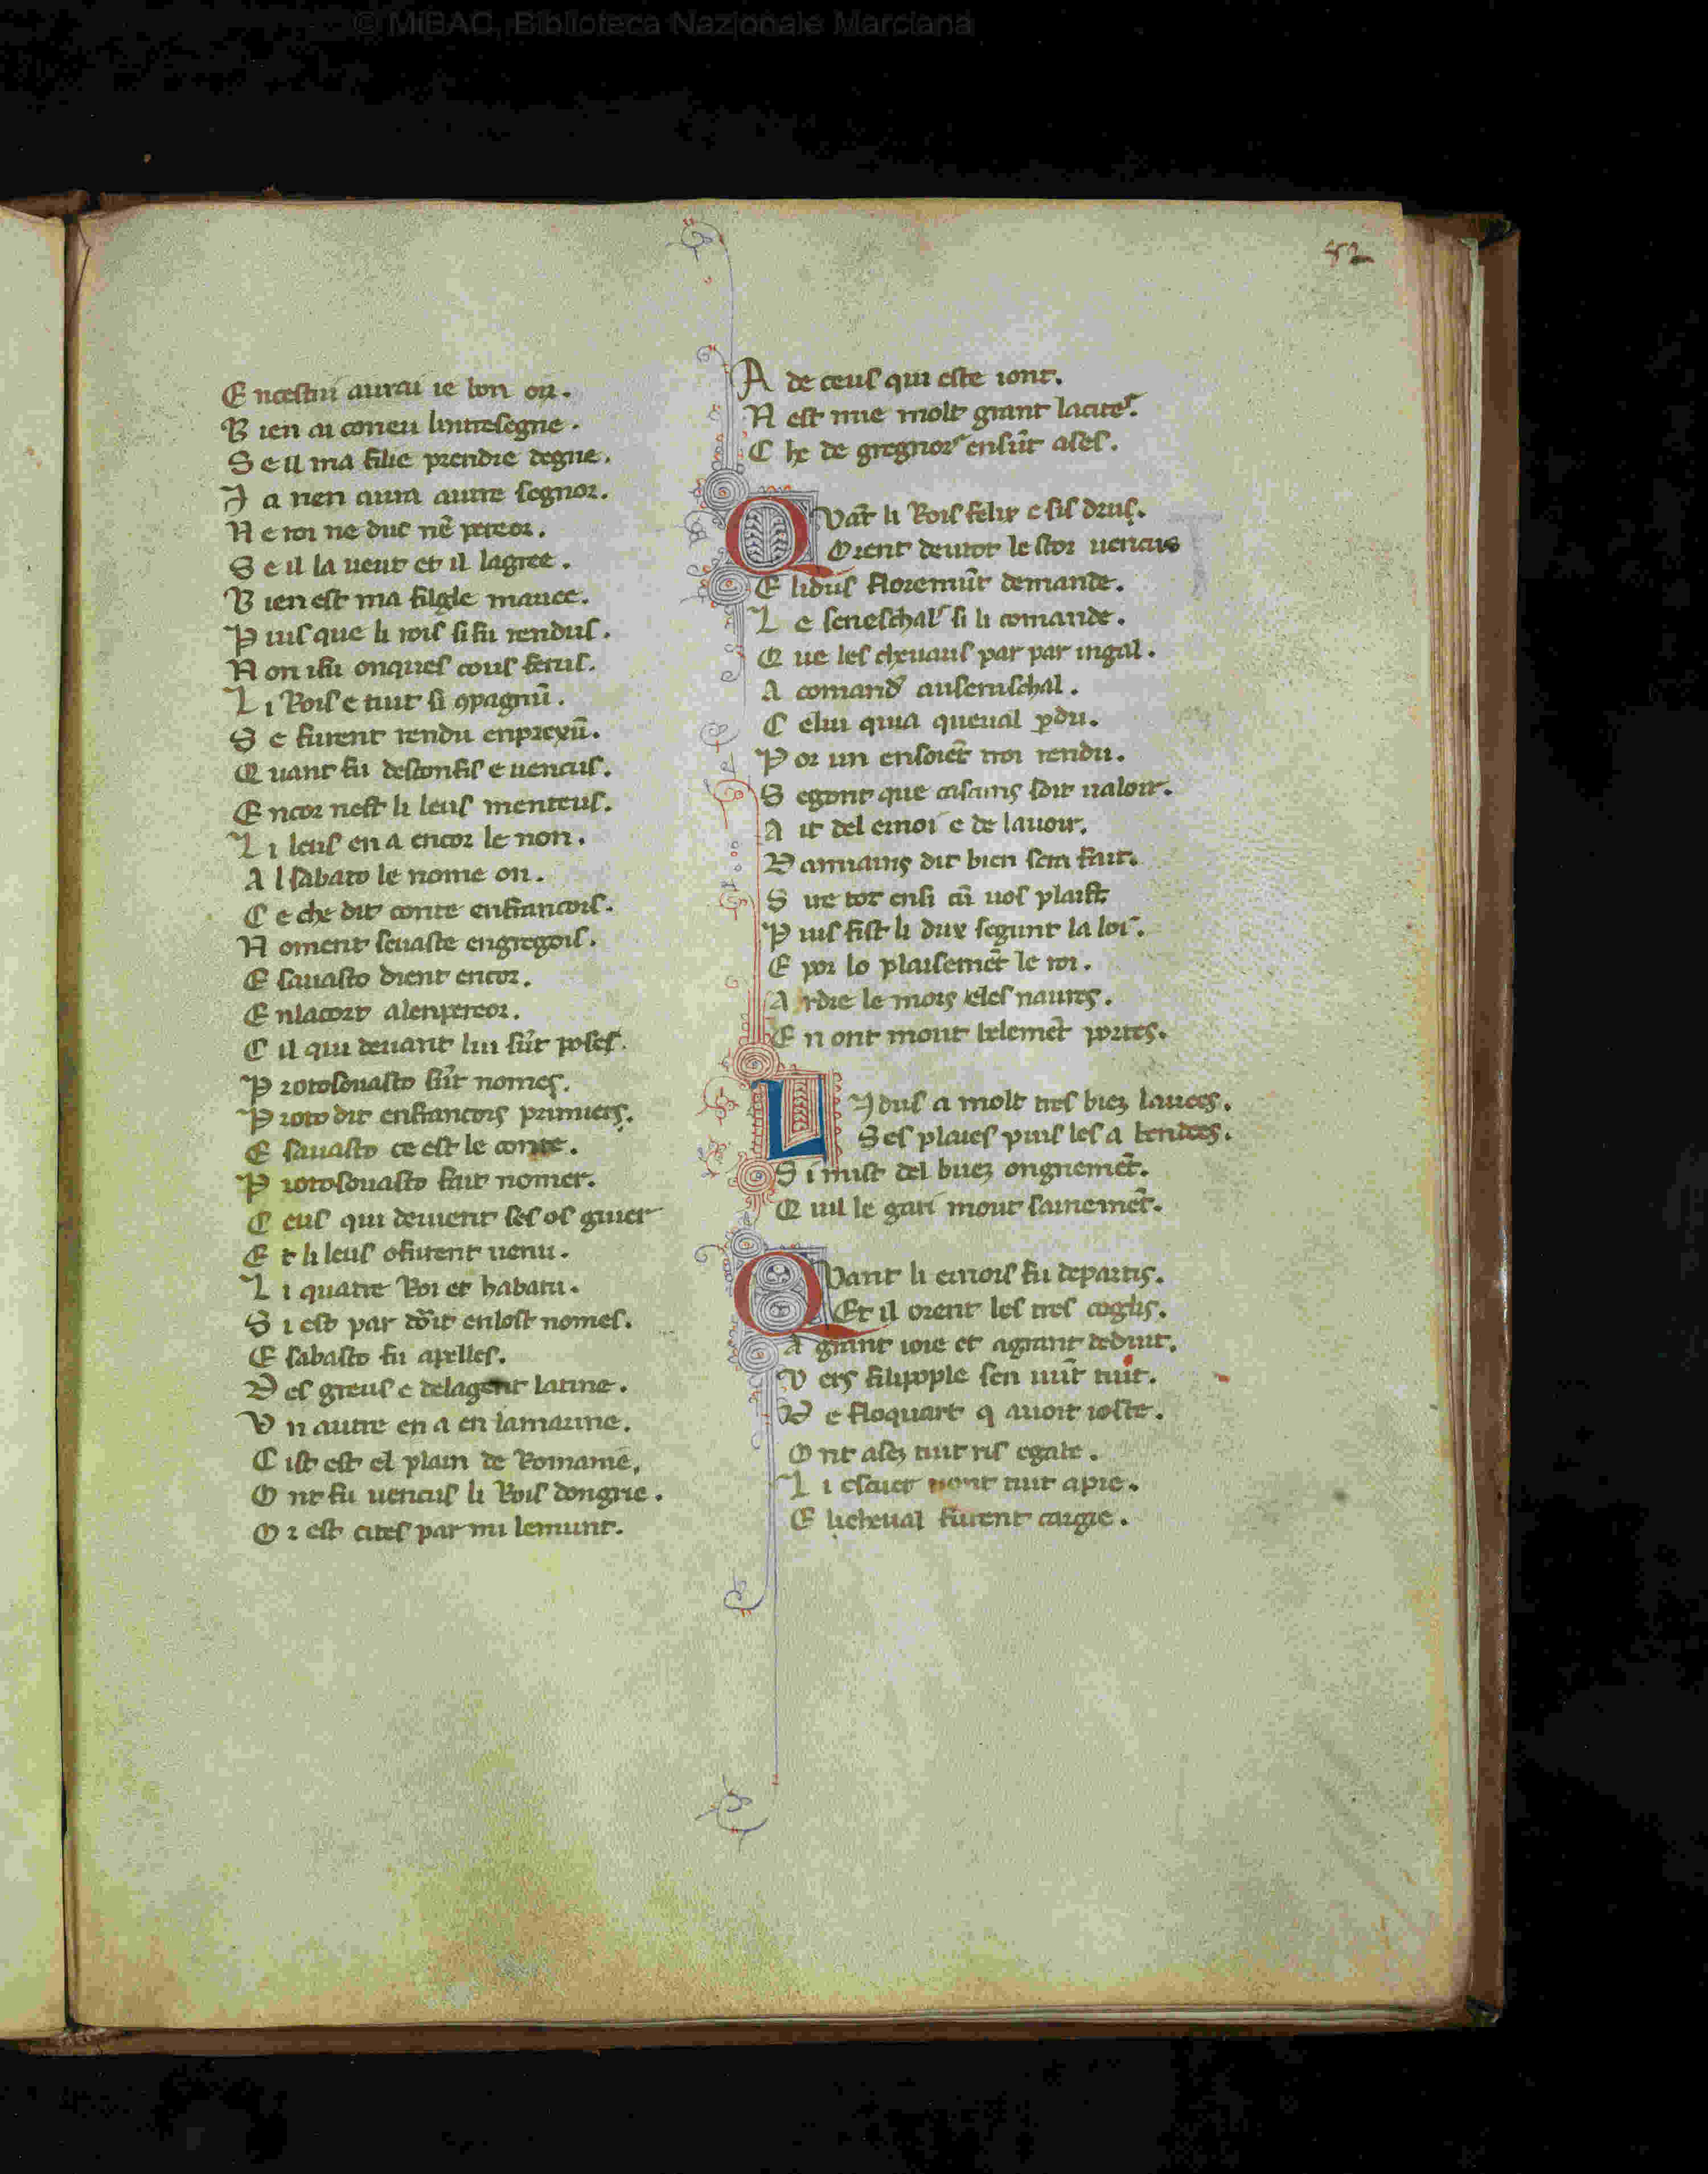 © MiBAC, Biblioteca Nazionale Marciana
52
E ncestui aurai ie bon oir.
B ien ai coneu lintresegne.
S e il ma filie prendre degne.
J a nen aura autre segnor.
N e roi ne duc nẽ pereor.
S e il la ueut et il lagree.
B ien est ma filgle mariee.
P uis que li rois si fu rendus.
N on ifu onques cous ferus.
L i Rois e tuit si ꝯpagnũ.
S e furent rendu enprexũ.
Q uant fu desconfis e uencus.
E ncor nest li leus menteus.
L i leus en a encor le non.
A l sabato le nome on.
C e che dit conte enfrancois.
N oment seuaste engregois.
E sauasto dient encor.
E nlacort alenpereor.
C il qui deuant lui sũt poses.
P rotosouasto sũt nomes.
P roto dit enfrancois primiers.
E sauasto ce est le conte.
P rotosouasto fait nomer.
C eus qui deuient ses os guier
E t li leus ofurent uenu.
L i quatre Roi et habatu.
S i est par droit enlost nomes.
E sabasto fu apelles.
D es greus e delagent latine.
U n autre en a en lamarine.
C ist est el plain de Romanie,
O nt fu uencus li Rois dongrie.
O r est cites par mi lemunt.
A de ceus qui este iont.
N est mie molt grant lacites.
C he de gregnors ensũt ases.
Q Uãt li Rois felix e sis drus.
Orent deutot lestor uencus
E lidus floremũt demande.
L e seneschals si li comande.
Q ue les cheuaus par par ingal.
A comand' auseruschal.
C elui quia queual ꝑdu.
P or un ensoiẽt troi rendu.
S egont que cascuns soit ualoir.
A it del emoi e de lauoir.
D amiains dit bien sera fait.
S ire tot ensi cũ uos plaist.
P uis fist li dux segunt la loi.
E por lo plaisemẽt le roi.
A rdre le mors eles naures.
E n ont mout belemẽt portes.
L Jdus a molt tres biez lauees.
Ses plaies puis les a bendees.
S i mist del buez ongnemẽt.
Q uil le gari mout sainemẽt.
Q Uant li emois fu departis.
Et il orent les tres coglis.
A grant ioie et agrant deduit.
V ers filipople sen uũt tuit.
D e floquart q auoit ioste.
O nt asez tuit ris egabe.
L i escuer nont tuit apre.
E licheual furent cargie.